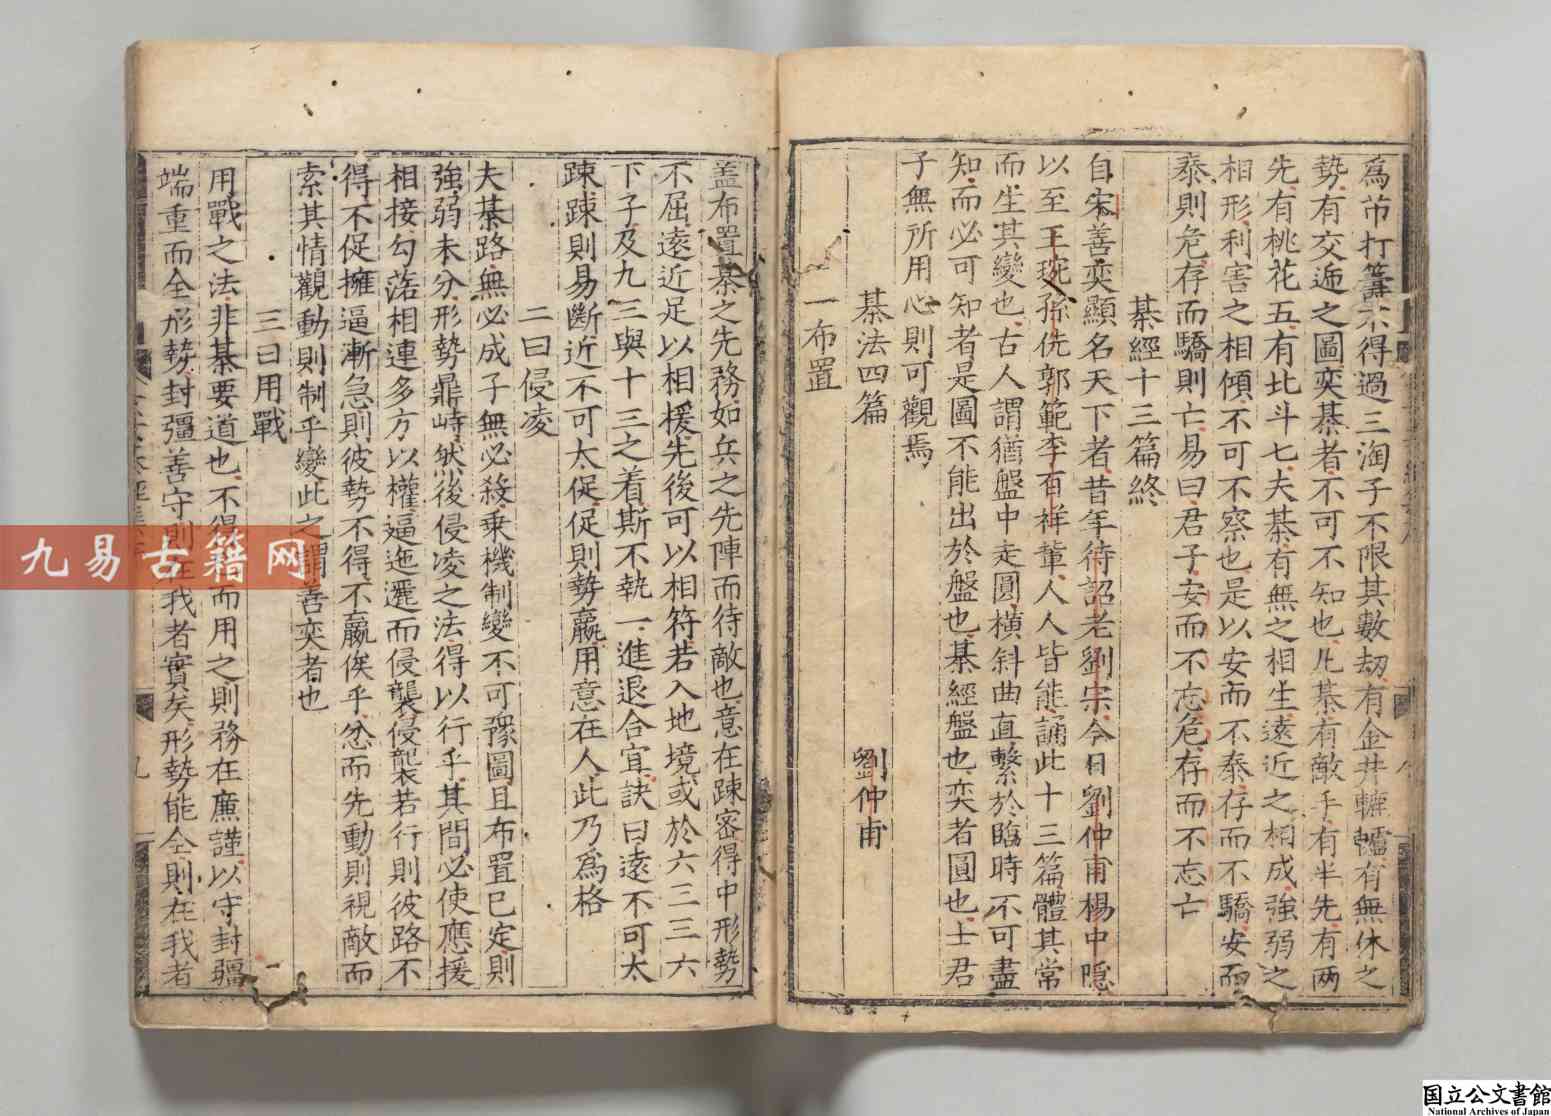 爲芇打籌不得過三淘子不限其數劫有金井轆轤有無休之
勢有交逓之圖奕棊者不可不知也凡棊有敵手有半先有两
先有桃花五有北斗七夫棊有無之相生遠近之相成強弱之
相形利害之相傾不可不察也是以安而不泰存而不驕安而
泰則危存而驕則亡易曰君子安而不忘危存而不忘亡
棊經十三篇終
自宋善奕顯名天下者昔年待詔老劉宗今日劉仲甫楊中隱
以至王琬孫侁郭範李百祥軰人人皆能誦此十三篇體其常
而生其變也古人謂猶盤中走圓橫斜曲直繫於臨時不可盡
知而必可知者是圖不能出於盤也棊經盤也奕者圓也士君
子無所用心則可觀焉
棊法四篇 劉仲甫
一布置
盖布置棊之先務如兵之先陣而待敵也意在踈密得中形勢
不屈遠近足以相援先後可以相符若入地境或於六三三六
下子及九三與十三之着斯不執一進退合宜訣曰遠不可太
踈踈則易斷近不可太促促則勢羸用意在人此乃爲格
二曰侵凌
夫棊路無必成子無必殺乗機制變不可豫圖且布置已定則
強弱未分形勢鼎峙然後侵凌之法得以行乎其間必使應援
相接勾落相連多方以權逼迤邐而侵襲侵襲若行則彼路不
得不促擁逼漸急則彼勢不得不羸俟乎忿而先動則視敵而
索其情觀動則制乎變此之謂善奕者也
三曰用戰
用戰之法非棊要道也不得而用之則務在廉謹以守封疆
端重而全形勢封彊善守則在我者實矣形勢能全則在我者
九
九易古籍网
国立公文書館
National Archives of Japan